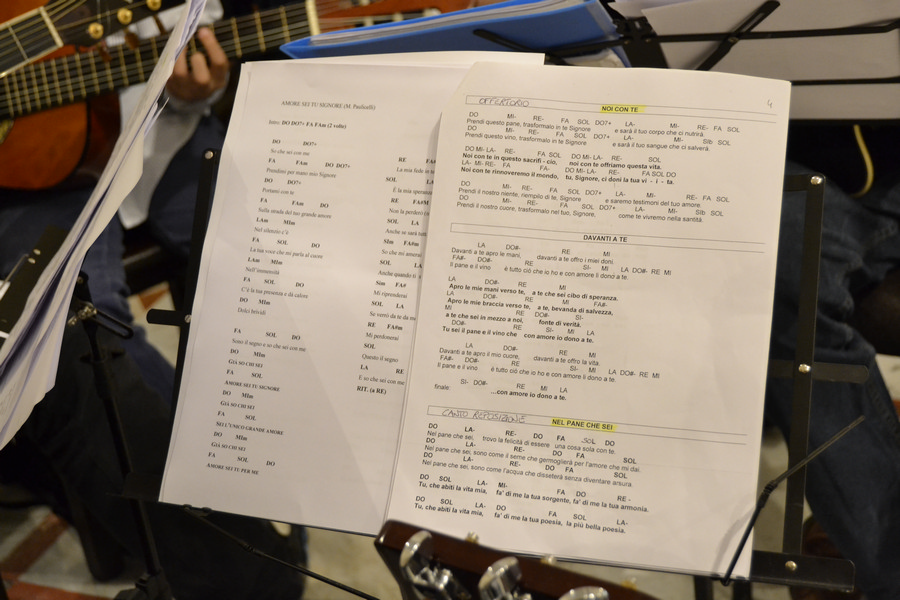 AMORE SEI TU SIGNORE (M. Paulicelli)
Intro: DO DO7+ FA FAm (2 volte)
DO DO7+
So che sei con me
FA FAm DO DO7+
Prendimi per mano mio Signore
DO DO7+
Portami con te
FA FAm DO
Sulla strada del tuo grande amore
LAm MIm
Nel silenzio c'è
FA SOL DO
La tua voce che mi parla al cuore
LAm MIm
Nell'immensità
FA SOL DO
C'è la tua presenza e dà calore
DO MIm
Dolci brividi
FA SOL DO
Sono il segno e so che sei con me
DO MIm
Già SO CHI SEI
FA SOL
AMORE SEI TU SIGNORE
DO MIm
Già SO CHI SEI
FA SOL
SEI L'UNICO GRANDE AMORE
DO MIm
Già SO CHI SEI
FA SOL DO
AMORE SEI TU PER ME
RE
La mia fede in te
SOL
È la mia speranza
RE FA#m
Non la perderò
SOL LA
Anche se sarà
SIm FA#m
So che mi amerai
SOL LA
Anche quando ti
SIm FA#
Mi riprenderai
SOL LA
Se verrò da te
RE FA#m
Mi perdonerai
SOL
Questo il segno
LA RE
E so che sei con me
RIT. (a RE)
OFFERTORIO NOI CON TE 4
DO MI- RE- FA SOL DO7+ LA- MI- RE- FA SOL
Prendi questo pane, trasformalo in te Signore e sarà il tuo corpo che ci nutrirà.
DO MI- RE- FA SOL DO7+ LA- MI- SIb SOL
Prendi questo vino, trasformalo in te Signore e sarà il tuo sangue che ci salverà.
DO MI- LA- RE- FA SOL DO MI- LA- RE- SOL
Noi con te in questo sacrifi - cio, noi con te offriamo questa vita.
LA- MI- RE- FA FA- DO MI- LA- RE- FA SOL DO
Noi con te rinnoveremo il mondo, tu, Signore, ci doni la tua vi - i - ta.
DO MI- RE- FA SOL DO7+ LA- MI- RE- FA SOL
Prendi il nostro niente, riempilo di te, Signore e saremo testimoni del tuo amore.
DO MI- RE- FA SOL DO7+ LA- MI- SIb SOL
Prendi il nostro cuore, trasformalo nel tuo, Signore, come te vivremo nella santità.
DAVANTI A TE
LA DO#- RE MI
Davanti a te apro le mani, davanti a te offro i miei doni.
FA#- DO#- RE SI- MI LA DO#- RE MI
Il pane e il vino è tutto ciò che io ho e con amore li dono a te.
LA DO#- RE MI
Apro le mie mani verso te, a te che sei cibo di speranza.
LA DO#- RE MI FA#-
Apro le mie braccia verso te, a te, bevanda di salvezza,
MI RE DO#- SI-
a te che sei in mezzo a noi, fonte di verità.
DO#- RE SI- MI LA
Tu sei il pane e il vino che con amore io dono a te.
LA DO#- RE MI
Davanti a te apro il mio cuore, davanti a te offro la vita.
FA#- DO#- RE SI- MI LA DO#- RE MI
Il pane e il vino è tutto ciò che io ho e con amore li dono a te.
SI- DO#- RE MI LA
finale: ...con amore io dono a te.
CANTO REPOSIZIONE NEL PANE CHE SEI
DO LA- RE- DO FA SOL DO
Nel pane che sei, trovo la felicità di essere una cosa sola con te.
DO LA- RE- DO FA SOL
Nel pane che sei, sono come il seme che germoglierà per l'amore che mi dai.
DO LA- RE- DO FA SOL
Nel pane che sei, sono come l'acqua che disseterà senza diventare arsura.
DO SOL LA- MI- FA DO RE -
Tu, che abiti la vita mia, fa' di me la tua sorgente, fa' di me la tua armonia.
DO SOL LA- DO FA SOL LA-
Tu, che abiti la vita mia, fa' di me la tua poesia, la più bella poesia.